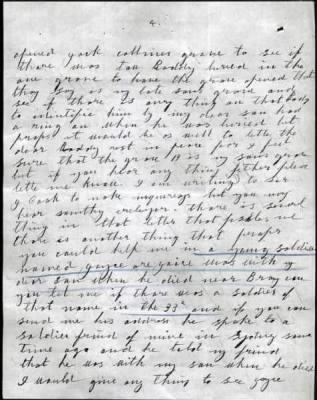 4.
opened york collines grave to see if
there was two Boddy buried in the
one grave to have the grave opened that
they say is my late sons grave and
see if there is any thing on that body
to identifie him by my dear son had
a ring on when he was buried but
praps it would be as well to lette the
dear Boddy rest in peace for I feel
sure that the grave is my sons grave
but if you hear any thing father please
lette me know. I am writing to sir
I Cook to make inquireys but you may
hear somthy there is sevral
thing in that letter that me
there is another thing that praper
you could help me in a young soldier
named Joyce or gaire was with my
dear son when he died near Bray can
you tel me if there was a soldier of
that name in the 33rd and if you can
send me his address he spoke to a
soldier frind of mine in Sydney some
time ago and he told my frind
that he was with my son when he died
I would give any thing to see joyce